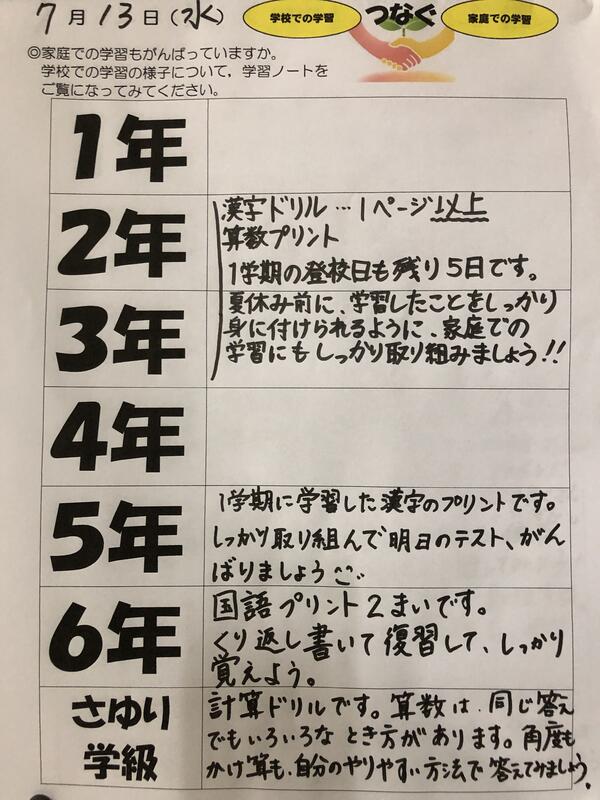 7月13日(水)
学校での学習
つなぐ
家庭での学習
◎家庭での学習もがんばっていますか。
学校での学習の様子について,学習ノートを
ご覧になってみてください。
1年
2年
漢字ドリル…1ページ以上
算数プリント
1学期の登校日も残り5日です。
3年
夏休み前に、学習したことをしっかり
身に付けられるように、家庭での
学習にもしっかり取り組みましょう!!
4年
5年
1学期に学習した漢字のプリントです。
しっかり取り組んで明日のテスト、がん
ばりましょう
6年
国語プリント2まいです。
くり返し書いて復習して、しっかり
覚えよう。
さゆり
学級
計算ドリルです。算数は、同じ答え
でもいろいろなとき方があります。角度も
かけ算も、自分のやりやすい方法で答えてみましょう。